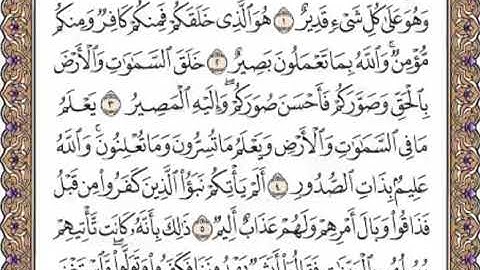 وَهُوَ عَلَىٰ كُلِّ شَىْءٍ قَدِيرٌ ١ هُوَ ٱلَّذِى خَلَقَكُمْ فَمِنكُمْ كَافِرٌ وَمِنكُم
مُّؤْمِنٌ ۚ وَٱللَّهُ بِمَا تَعْمَلُونَ بَصِيرٌ ٢ خَلَقَ ٱلسَّمَٰوَٰتِ وَٱلْأَرْضَ
بِٱلْحَقِّ وَصَوَّرَكُمْ فَأَحْسَنَ صُوَرَكُمْ ۖ وَإِلَيْهِ ٱلْمَصِيرُ ٣ يَعْلَمُ
مَا فِى ٱلسَّمَٰوَٰتِ وَٱلْأَرْضِ وَيَعْلَمُ مَا تُسِرُّونَ وَمَا تُعْلِنُونَ ۚ وَٱللَّهُ
عَلِيمٌۢ بِذَاتِ ٱلصُّدُورِ ٤ أَلَمْ يَأْتِكُمْ نَبَؤُا۟ ٱلَّذِينَ كَفَرُوا۟ مِن قَبْلُ
فَذَاقُوا۟ وَبَالَ أَمْرِهِمْ وَلَهُمْ عَذَابٌ أَلِيمٌ ٥ ذَٰلِكَ بِأَنَّهُۥ كَانَت تَّأْتِيهِمْ